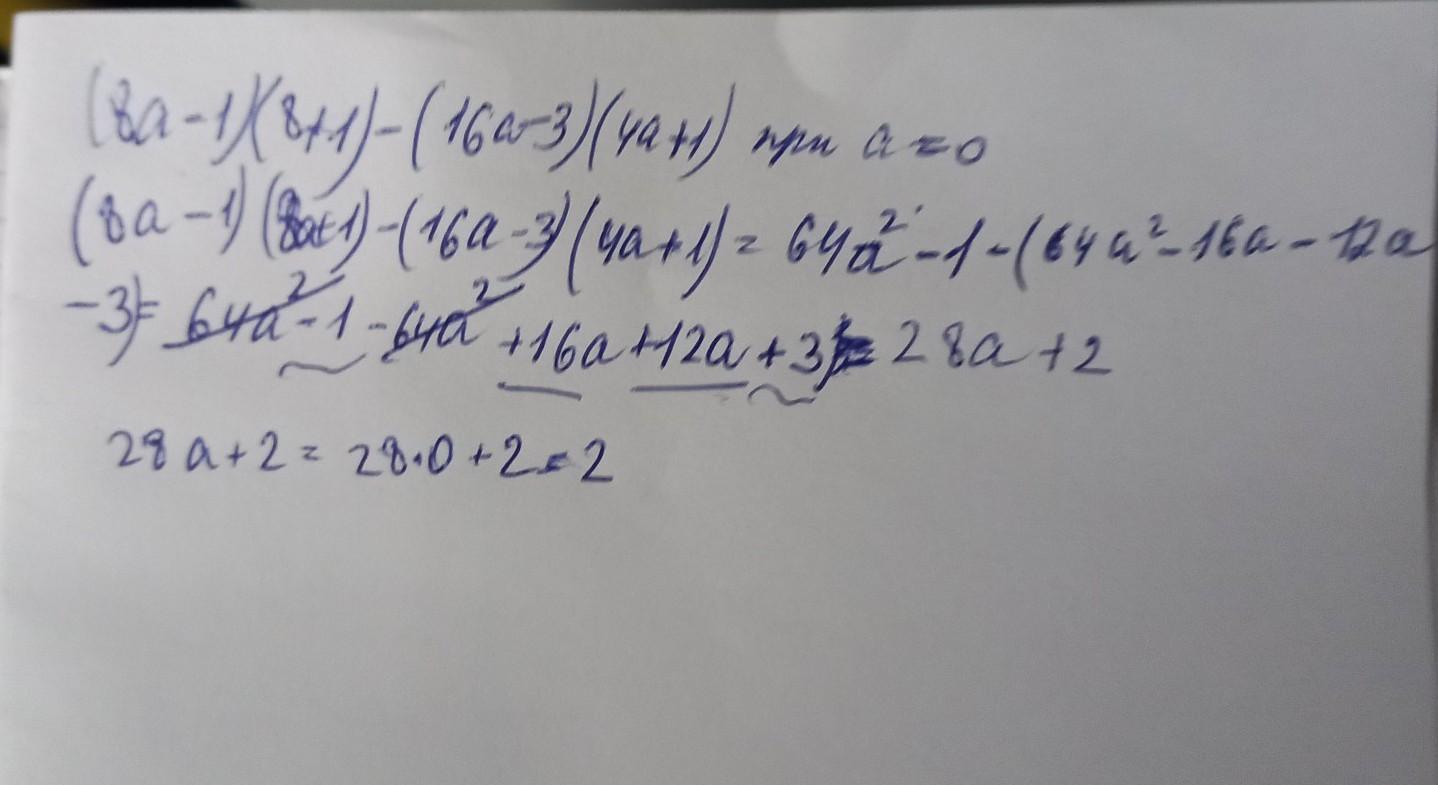 (8a-1)(8+1)-(16a-3)(4a+1) при a=0
(8a-1)(8a+1)-(16a-3)(4a+1)=64a²-1-(64a²-16a-12a
-3)=64a²-1-64a²+16a+12a+3)=28a+2
28a+2=28·0+2=2